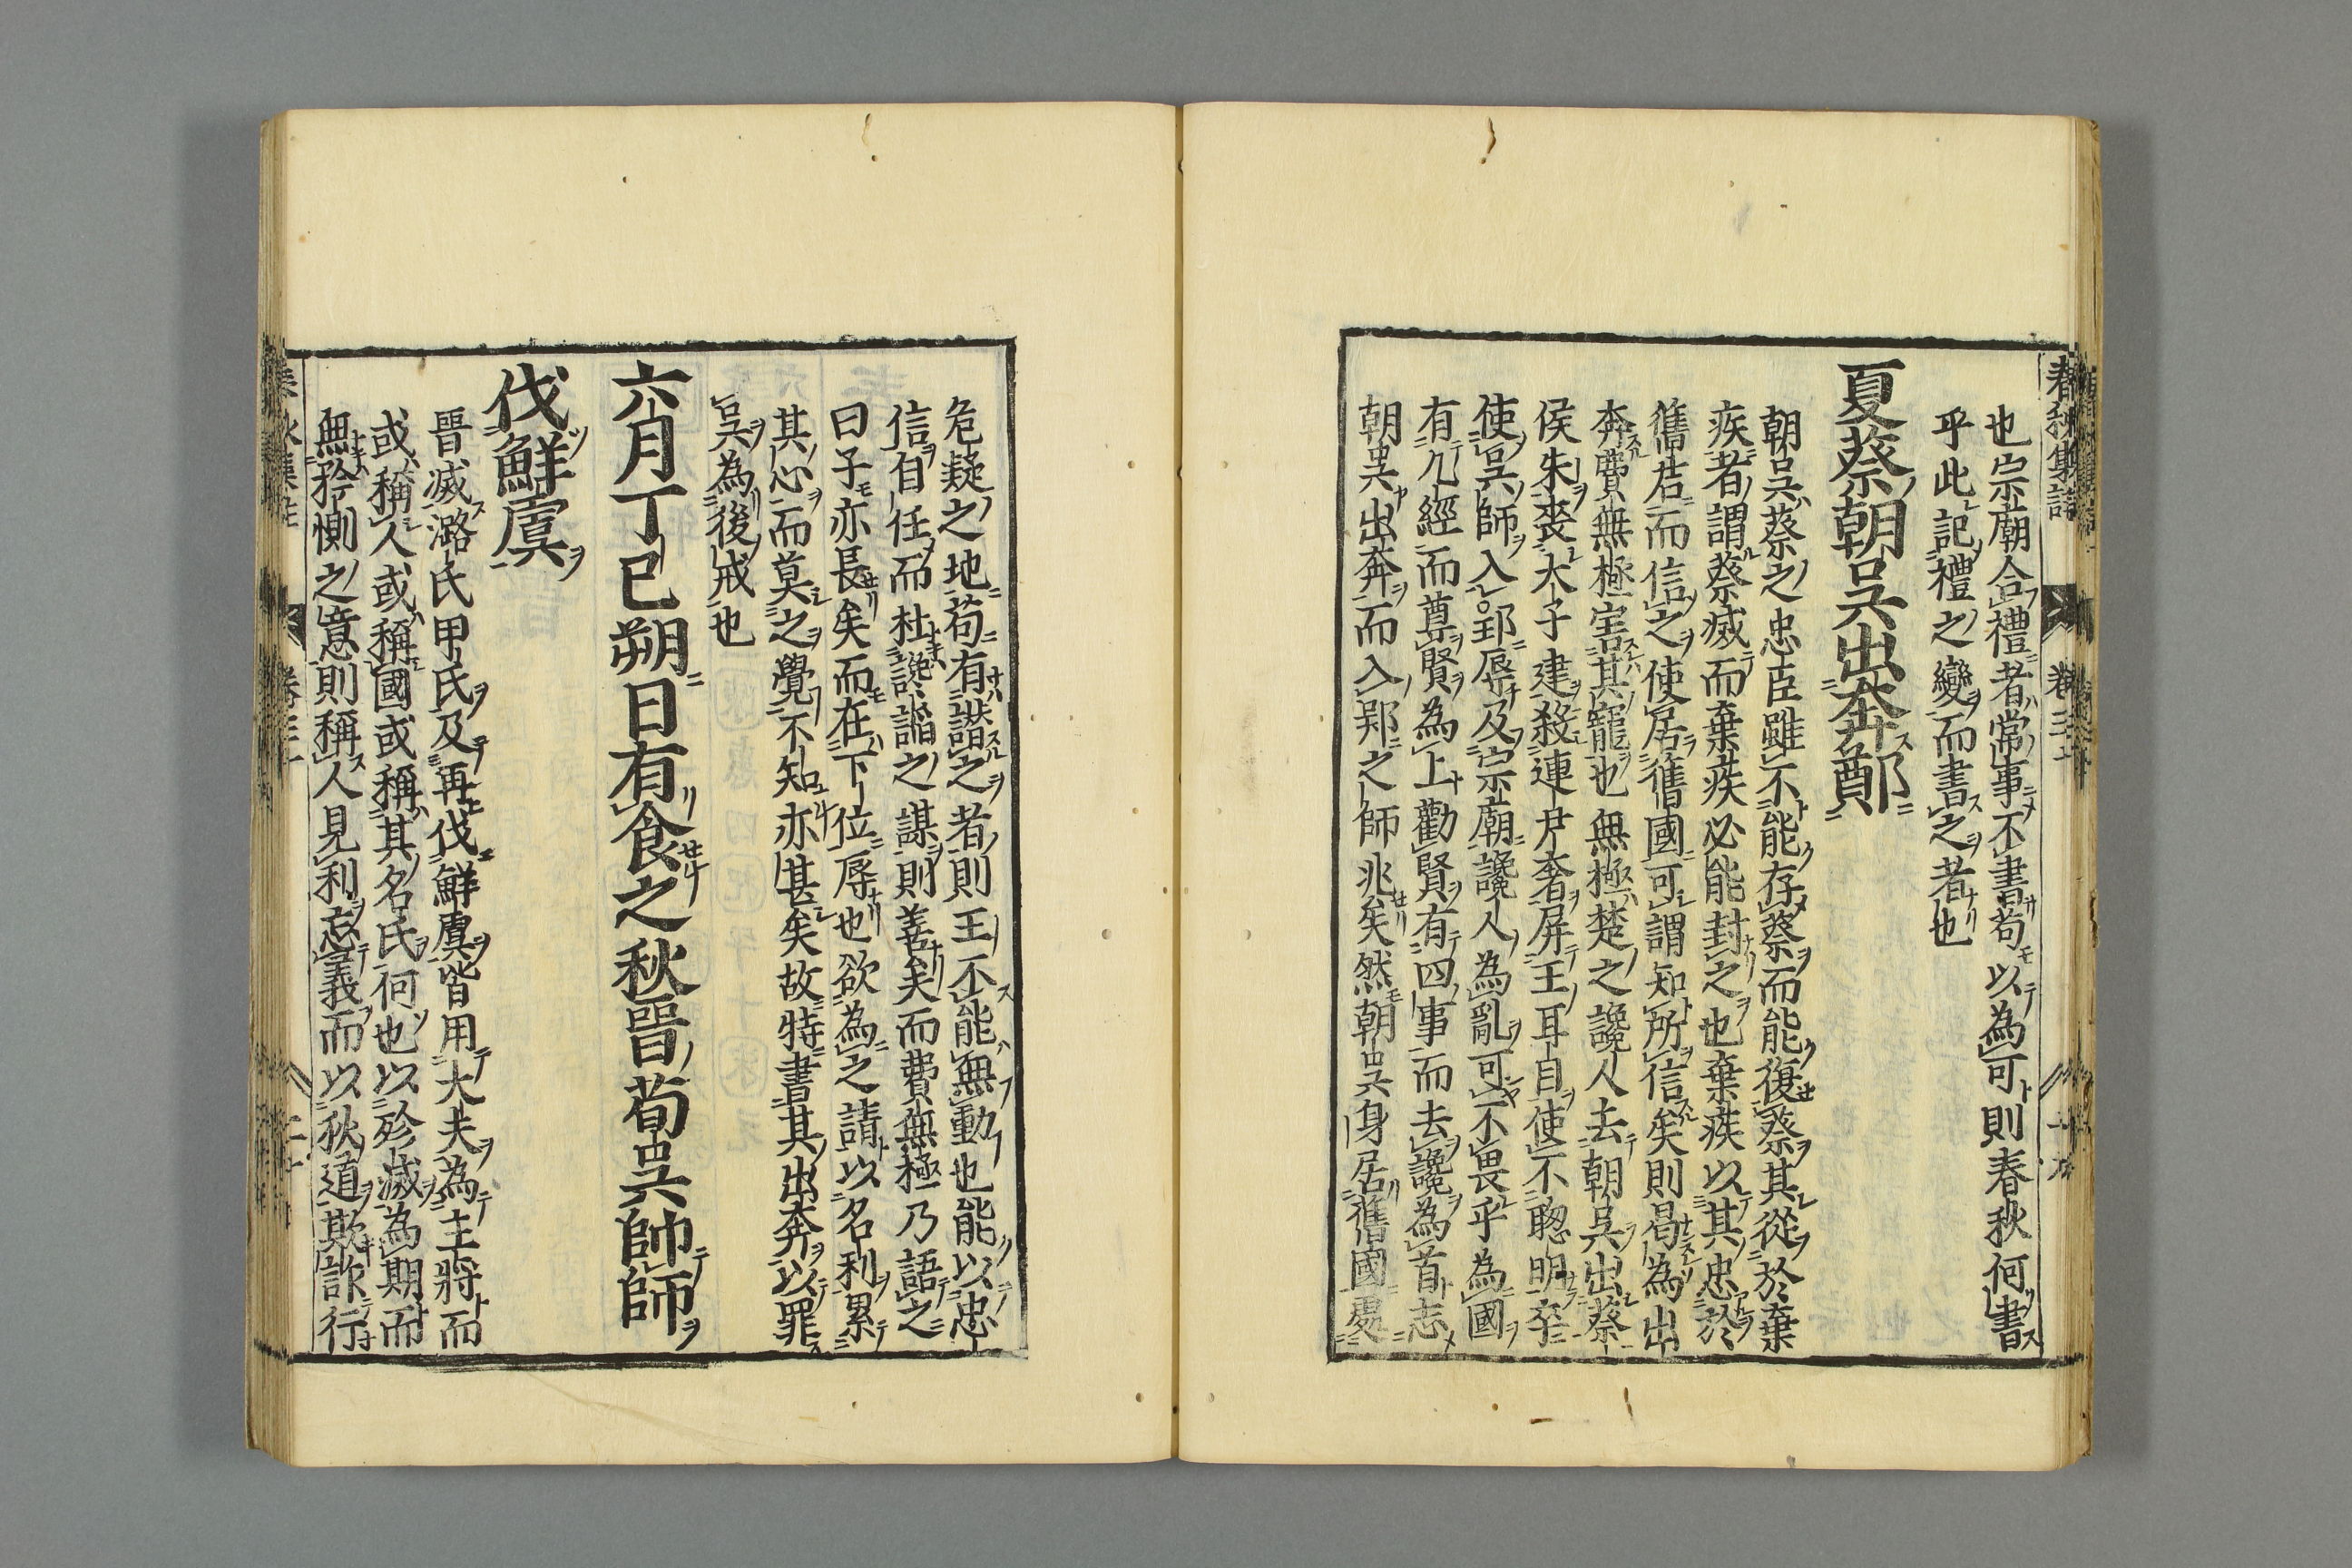 春秋集註 卷三十
也宗廟合禮者常事不書苟以為可則春秋何書
乎此記禮之變而書之者也
夏蔡朝吳出奔鄭
朝吳蔡之忠臣雖不能存蔡而能復蔡其從於棄
疾者謂蔡滅而棄疾必能封之也棄疾以其忠於
舊君而信之使居舊國可謂知所信矣則曷為出
奔費無極害其寵也無極楚之讒人去朝吳出蔡
侯朱喪大子建殺連尹奢屏王耳目使不聰明卒
使吳師入郢辱及宗廟讒人為亂可不畏乎為國
有九經而尊賢為上勸賢有四事而去讒為首志
朝吳出奔而入郢之師兆矣然朝吳身居舊國處
危疑之地苟有譖之者則王不能無動也能以忠
信自任而杜讒謟之謀則善矣而費無極乃語之
曰子亦長矣而在下位辱也欲為之請以名利累
其心而莫之覺不知亦甚矣故特書其出奔以罪
吳為後戒也
六月丁巳朔日有食之秋晉荀吳帥師
伐鮮虞
晉滅潞氏甲氏及再伐鮮虞皆用大夫為主將而
或稱人或稱國或稱其名氏何也以殄滅為期而
無矜惻之意則稱人見利忘義而以狄道欺詐行